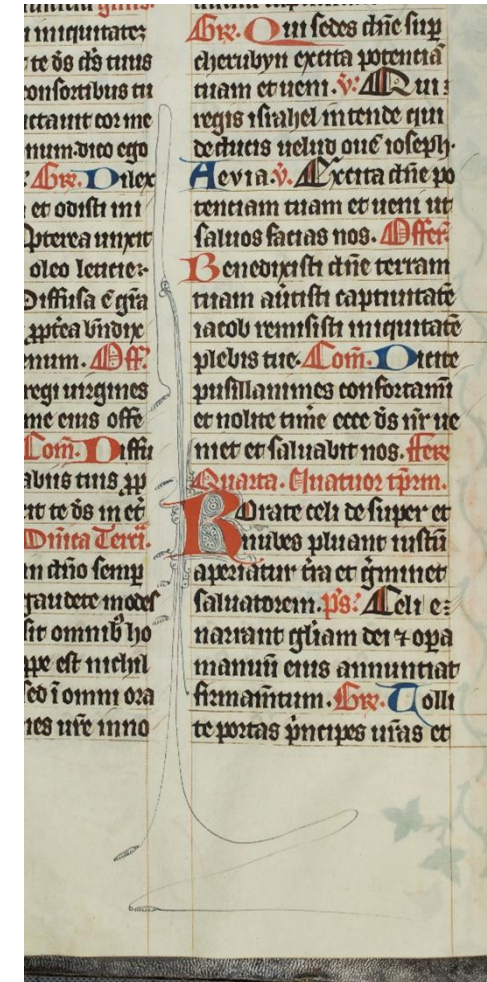 iniquitatez
te ds̄ ds̄ tuus
onsortibus tu
uctauit cor me
num·dico ego
Gr̄e. Dilex
et odisti ini
ppterea unxit
oleo leticie
Diffusa ē gr̄a
ꝓpt̄ea bn̄dix
num. Off.
regi uirgines
me eius offe
Com̄. Diffu
abijs tuis ꝓp
it te ds̄ in et̄
Dn̄ica Terci.
in dn̄o semp
gaudete modes
sit omnibꝰ ho
ppe est nichil
sed ī omni ora
nes ur̄e inno
Gr̄e. Qui sedes dn̄e suꝑ
cherubyn excita potenciā
tuam et ueni. v̇. Qui
regis israhel intende qui
deducis uelud ouē ioseph.
Aevia. v̇. Excita dn̄e po
tenciam tuam et ueni ut
saluos facias nos. Offer̄.
Benedixisti dn̄e terram
tuam aūtisti captiuitatē
iacob remisisti iniquitatē
plebis tue. Com̄. Dicite
pusillanimes confortami
et nolite time ecce ds̄ nr̄ ue
niet et saluabit nos. Fer̄
Quarta. Quatuor tp̄rm.
Rorate celi de super et
nubes pluant iustū
aperiatur tr̄a et gminet
saluatorem. ps̄. Celi e
narrant gl̄iam dei ⁊ oꝑa
manuū eius annunciat
firmam̄tum. Gr̄e. Tolli
te portas pncipes ur̄as et